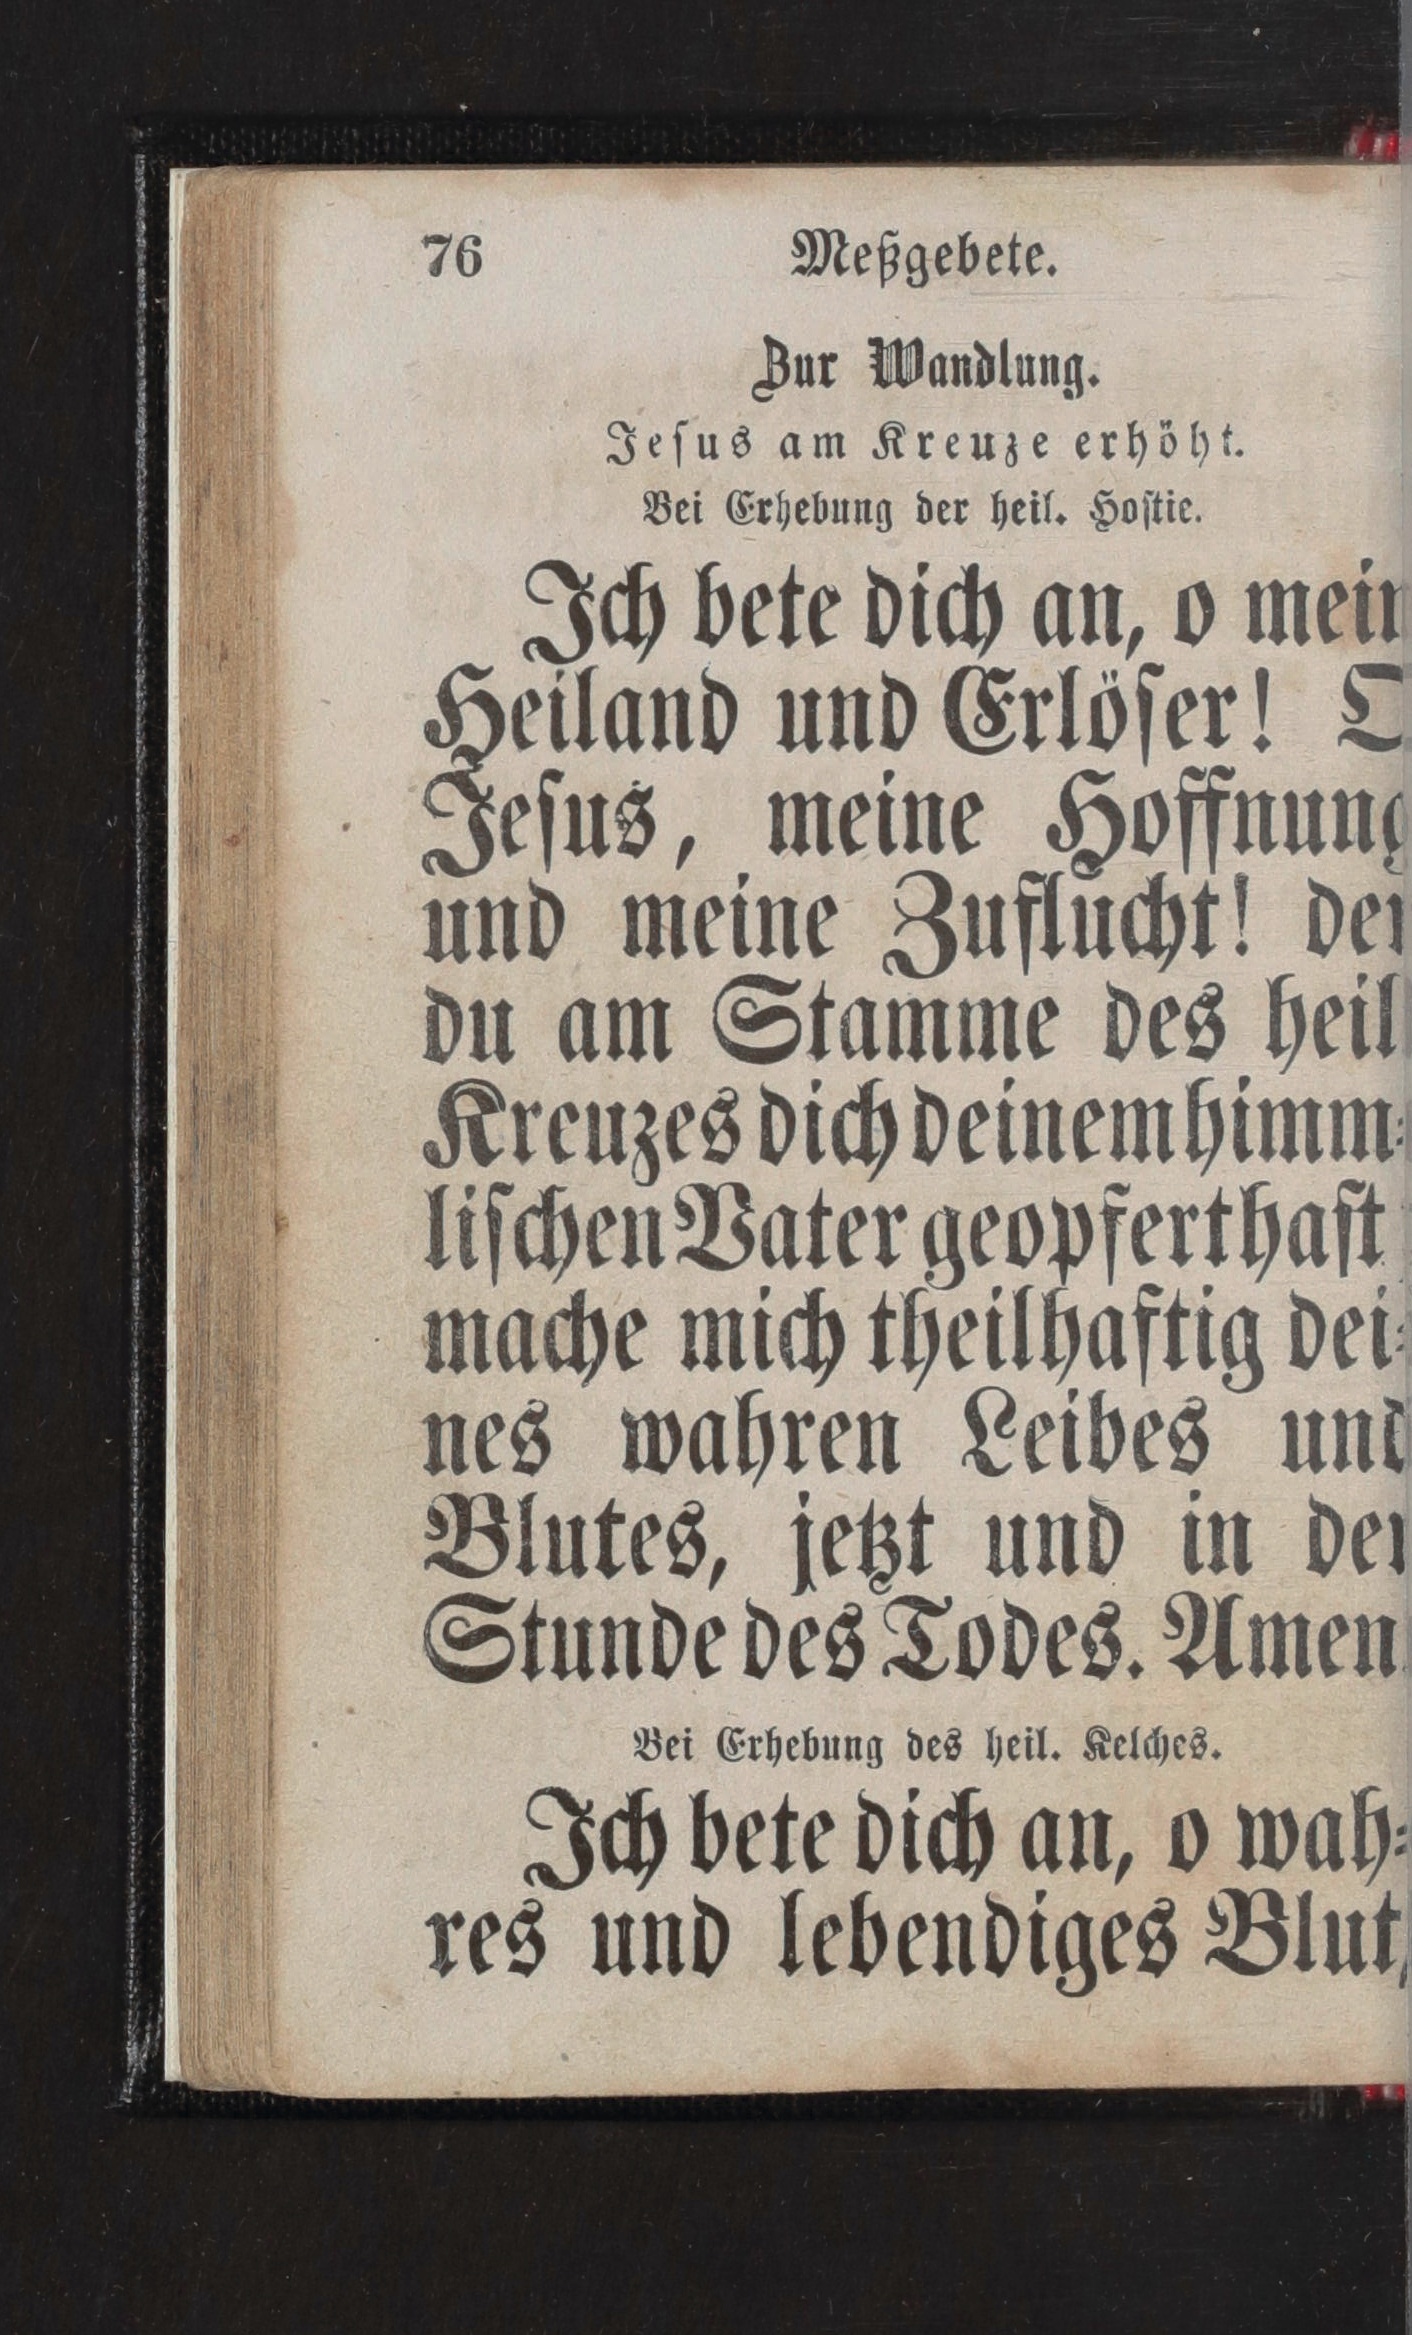 76 Meßgebete.
Zur Wandlung.
Jesus am Kreuze erhöht.
Bei Erhebung der heil. Hostie.
Ich bete dich an, o mein
Heiland und Erlöser! O
Jesus, meine Hoffnung
und meine Zuflucht! der
du am Stamme des heil
Kreuzes dich deinem himm-
lischen Vater geopfert hast
mache mich theilhaftig dei-
nes wahren Leibes und
Blutes, jetzt und in der
Stunde des Todes. Amen.
Bei Erhebung des heil. Kelches.
Ich bete dich an, o wah-
res und lebendiges Blut,